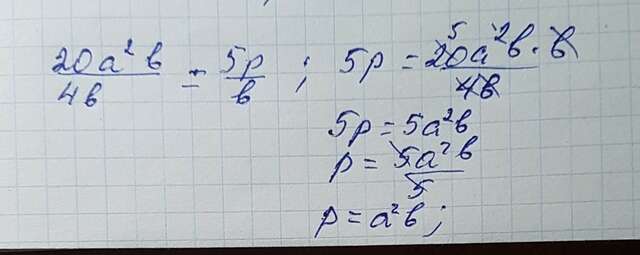 20a²в/4в = 5p/в ; 5p = 20a²в · в/4в 5
5p = 5a²в
p = 5a²в/5
p = a²в;